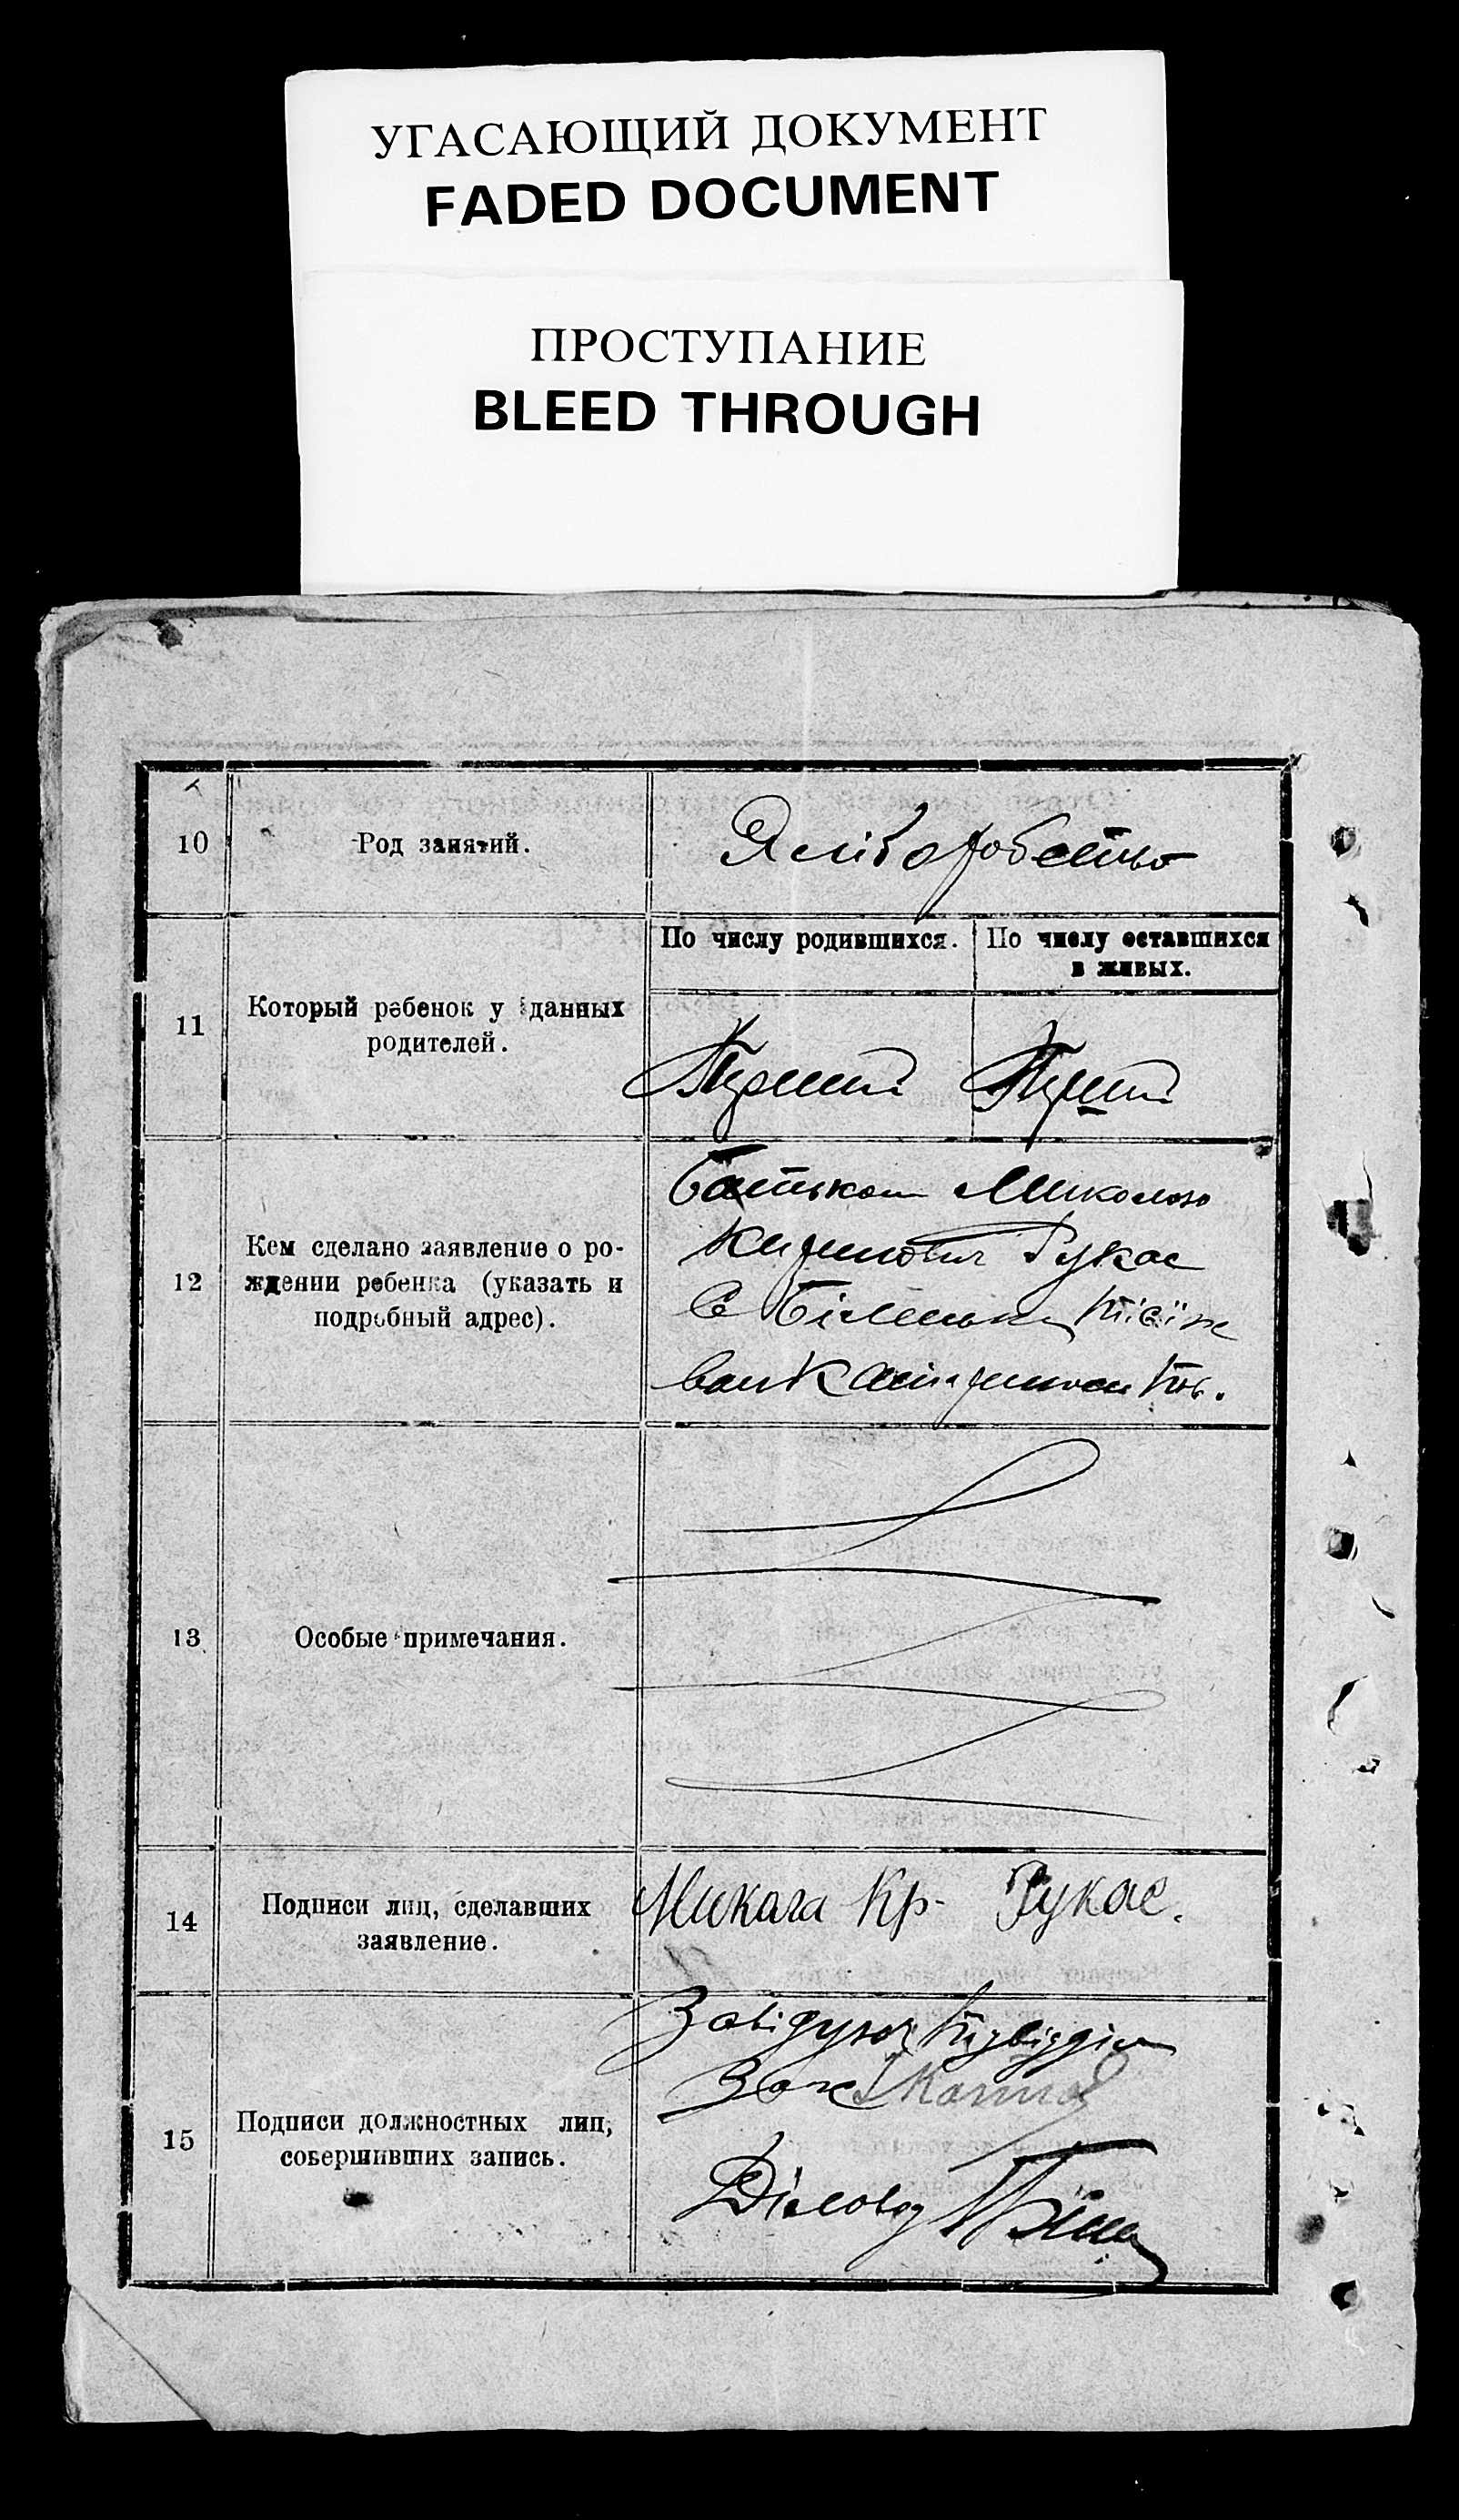 УГАСАЮЩИЙ ДОКУМЕНТ
FADED DOCUMENT
ПРОСТУПАНИЕ
BLEED THROUGH
10
Род занятий.
Хліборобство
11
Который ребенок у данных
родителей.
По числу родившихся.
По числу оставшихся
в живых.
Перший
Перший
12
Кем сделано заявление о ро-
ждении ребенка (указать и
подробный адрес).
Батьком Миколою
Гукас
С
13
Особые примечания.
14
Подписи лиц, сделавших
заявление.
Микала Кр- Гукас.
15
Подписи должностных лиц,
совершивших запись.
Завідуюч
Зак
Діловод